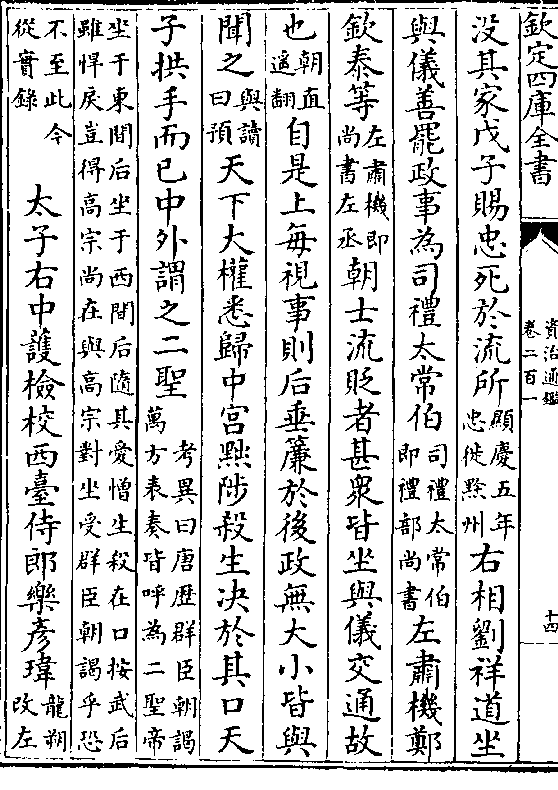 欽定四庫全書
資治通鑑
卷二百一
十四
没其家戊子賜忠死於流所顯慶五年忠徙黔州右相劉祥道坐
與儀善罷政事為司禮太常伯司禮太常伯即禮部尚書左肅機鄭
欽泰等左肅機即尚書左丞朝士流貶者甚衆皆坐與儀交通故
也朝直遥翻自是上每視事則后垂簾於後政無大小皆與
聞之與讀曰預天下大權悉歸中宫黜陟殺生决於其口天
子拱手而已中外謂之二聖考異曰唐歷羣臣朝謁萬方表奏皆呼為二聖帝
坐于東間后坐于西間后隨其愛憎生殺在口按武后雖悍戾豈得高宗尚在與高宗對坐受群臣朝謁乎恐
不至此今從實錄太子右中護檢校西臺侍郎樂彦瑋龍朔改左